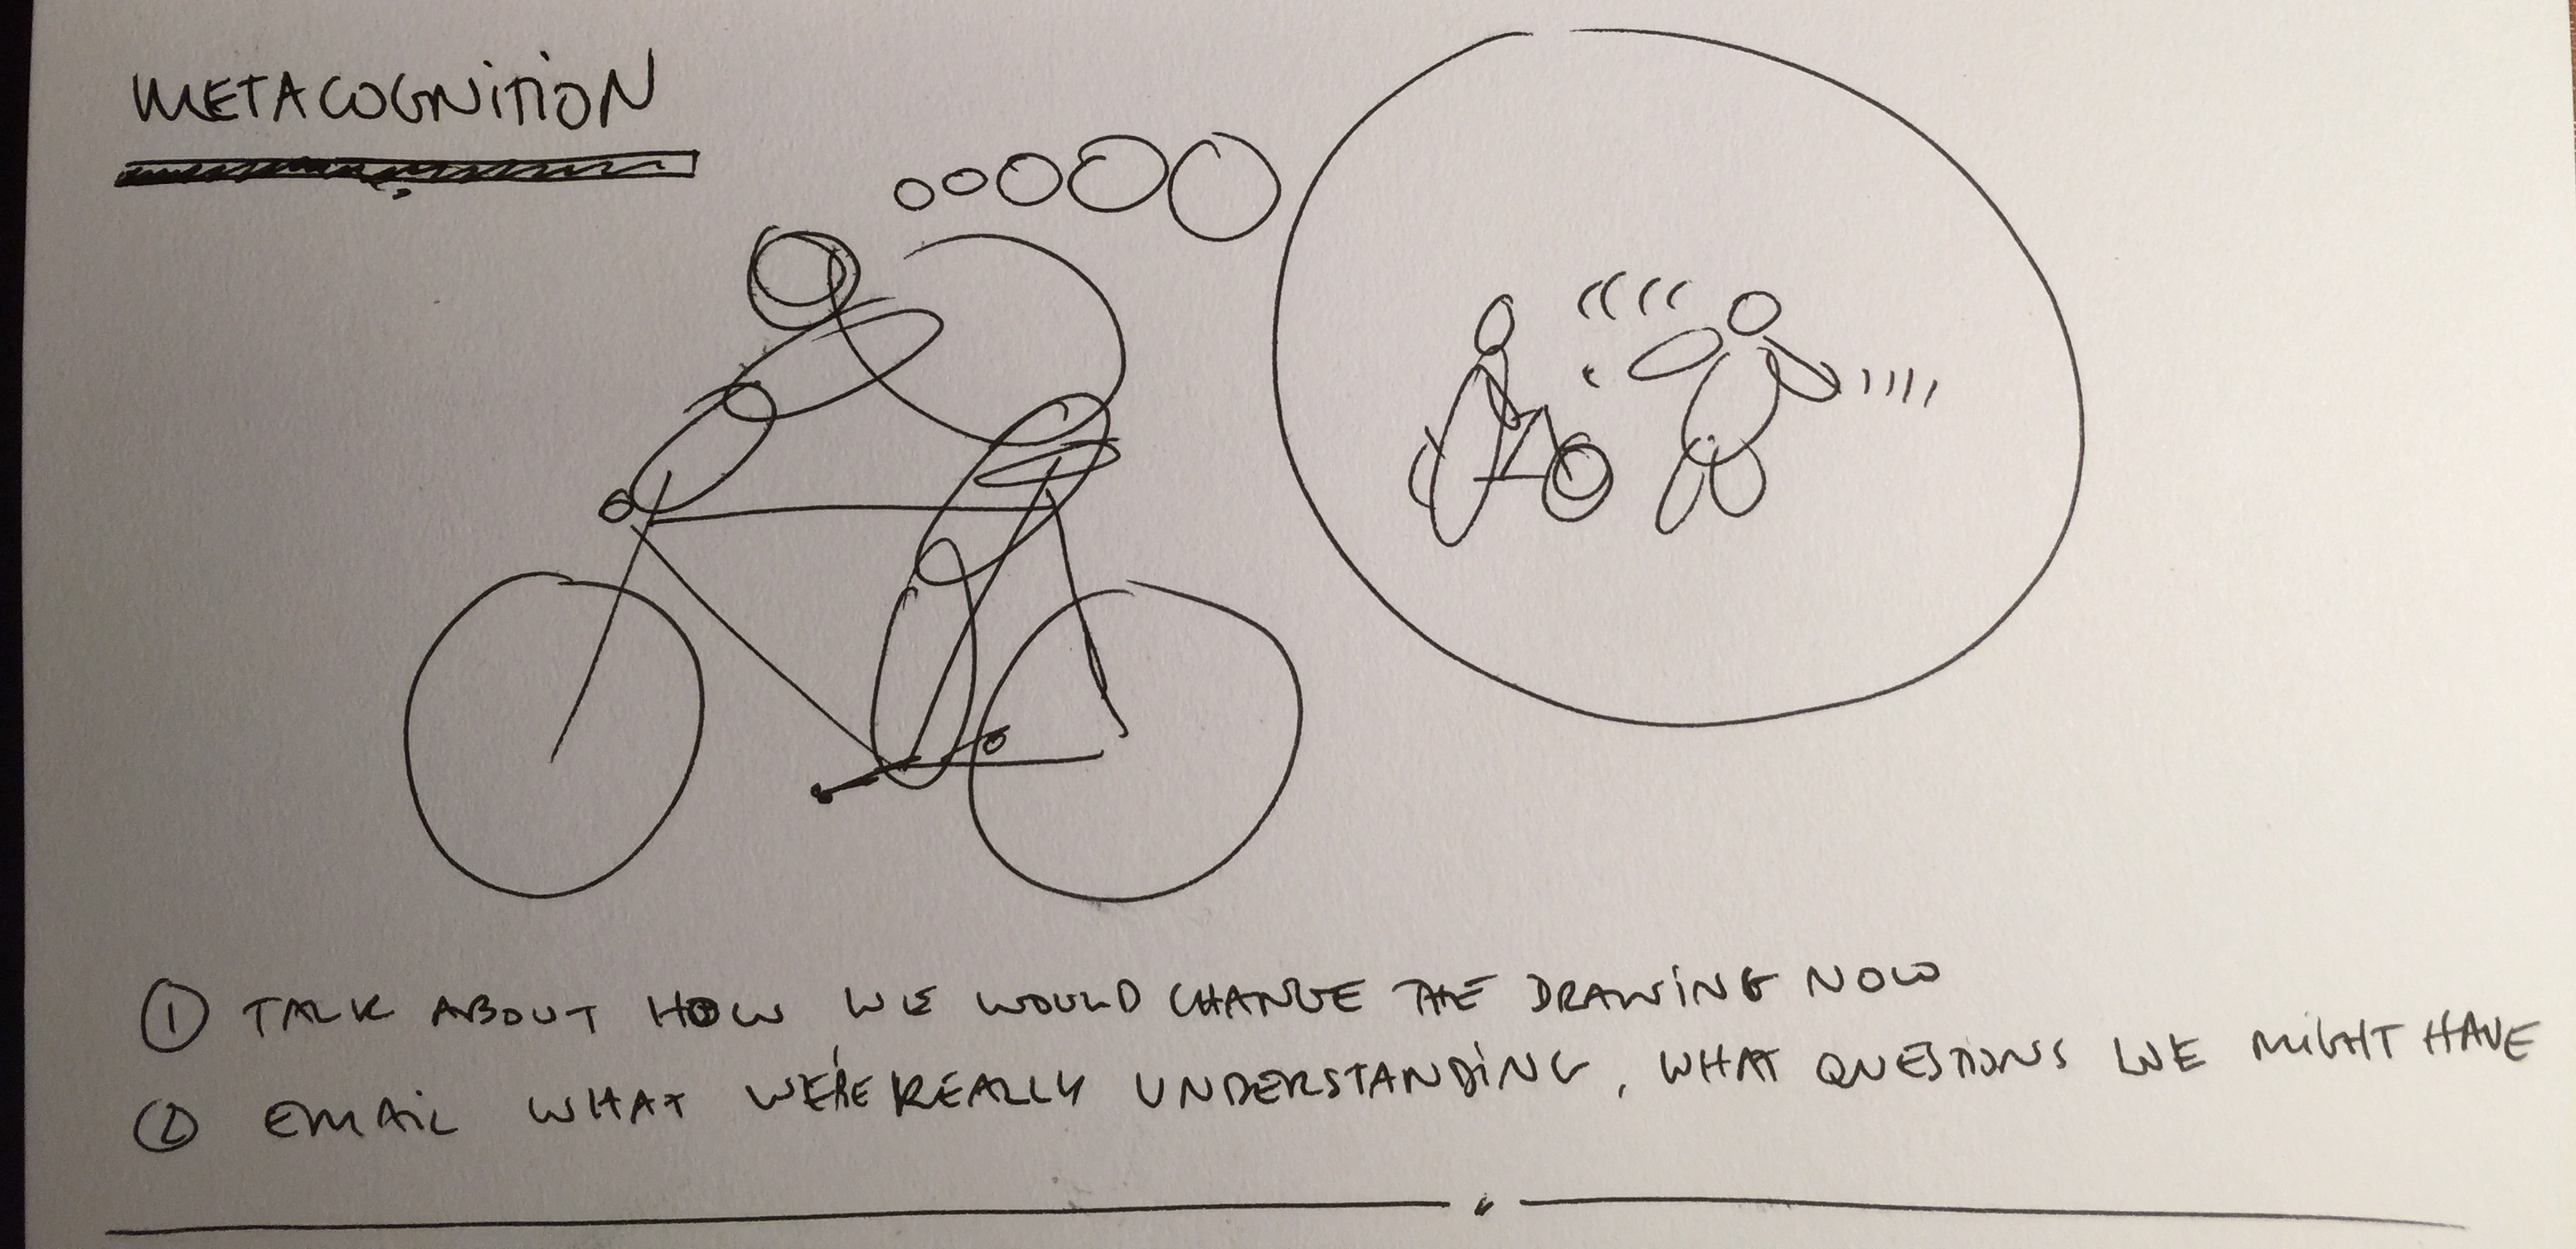 METACOGNITION
① TALK ABOUT HOW WE WOULD CHANGE THE DRAWING NOW
② EMAIL WHAT WE'RE REALLY UNDERSTANDING, WHAT QUESTIONS WE MIGHT HAVE